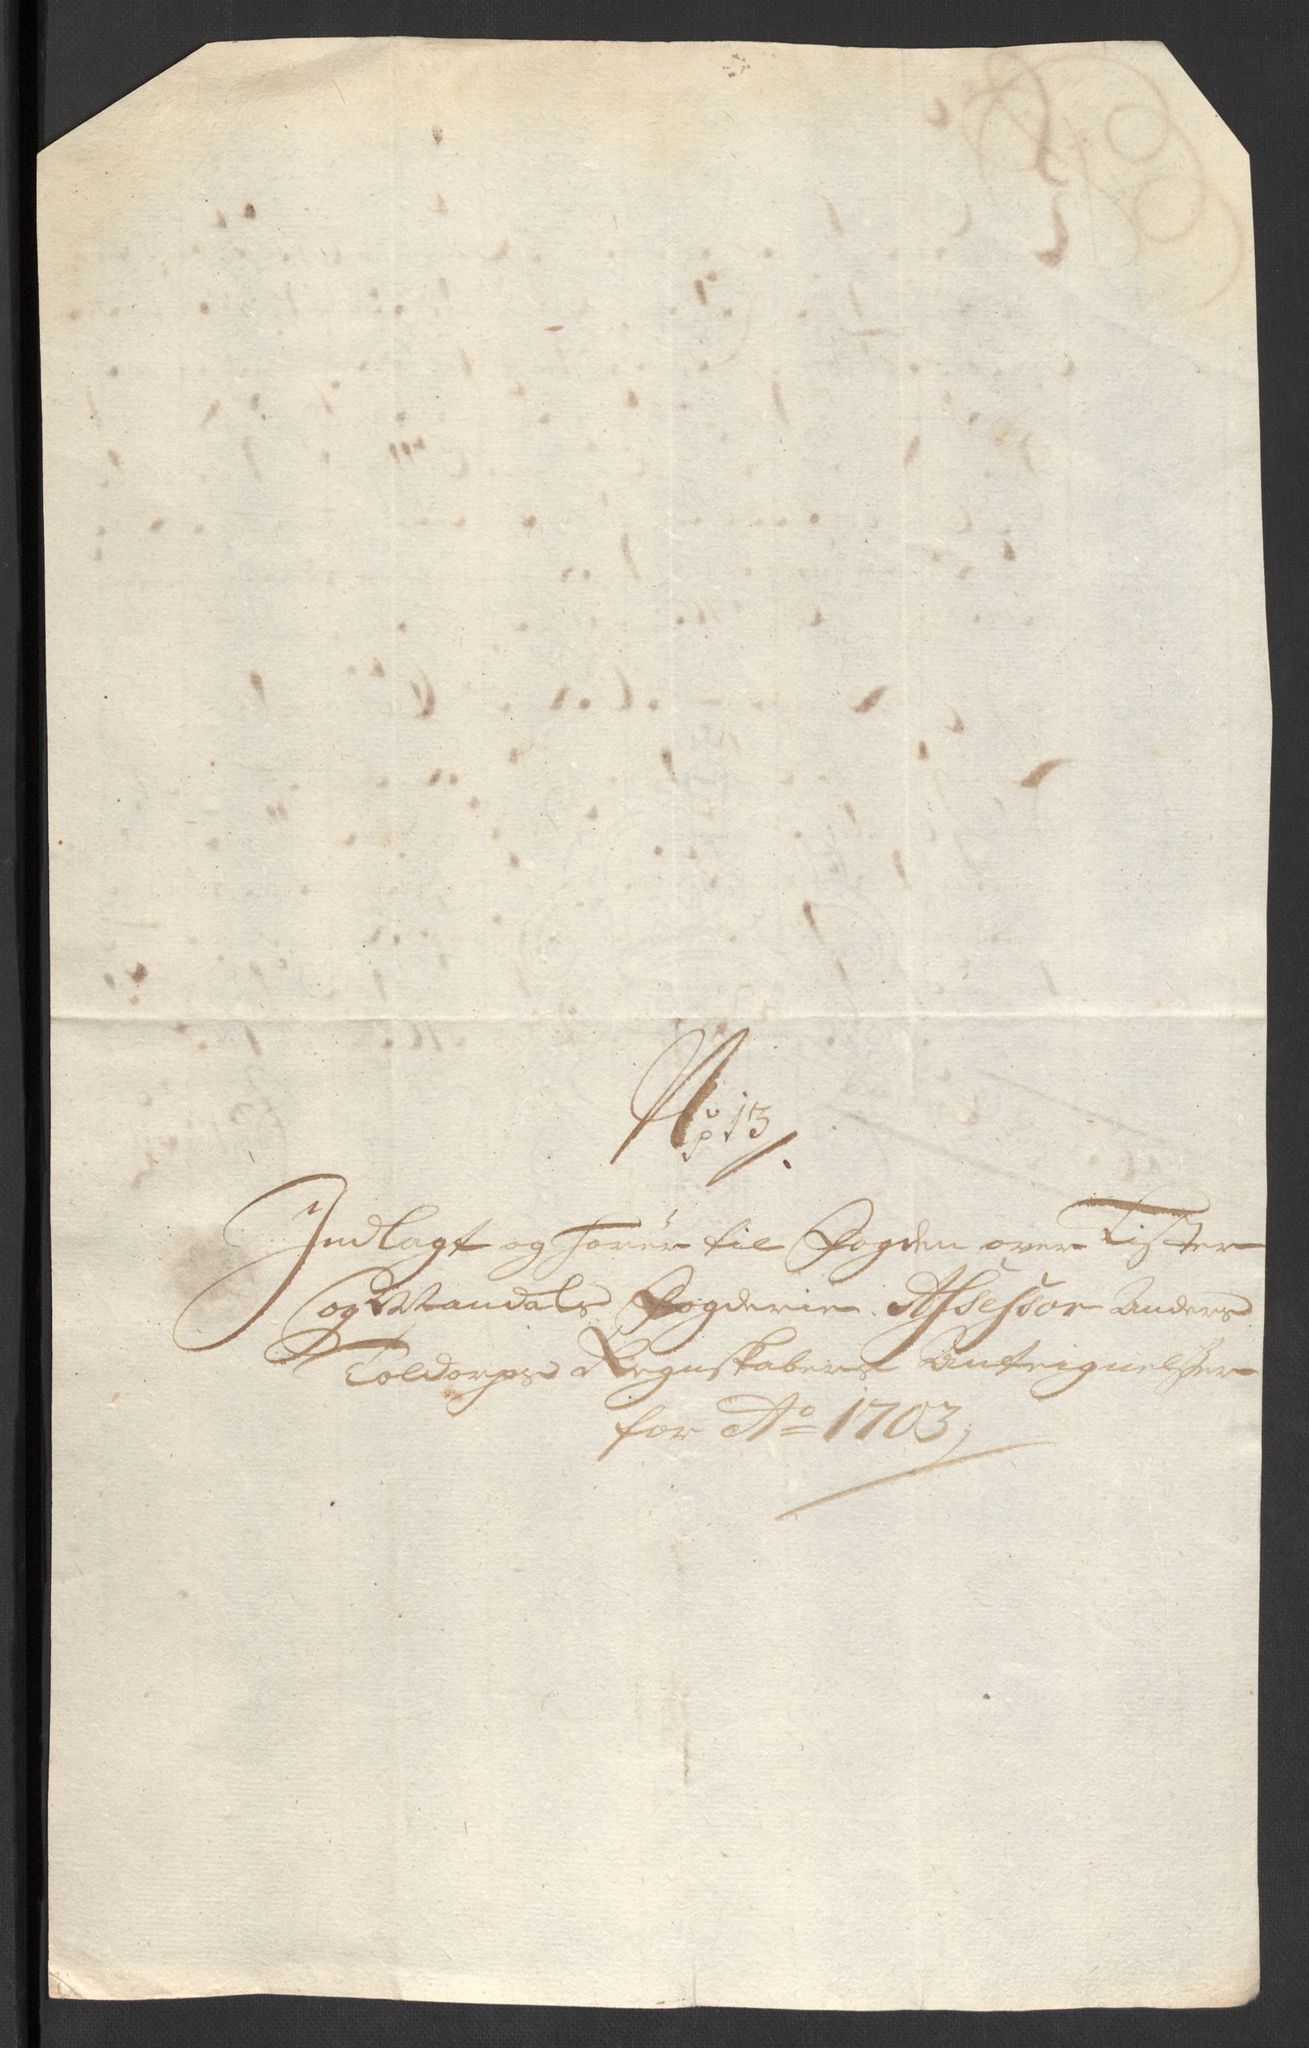 No 13
Indlagt og hører til Fogden over Lister
og Mandals Fogderie Assessor Anders
Toldorphs Regnskabers Anteignelsser
for Ao 1703